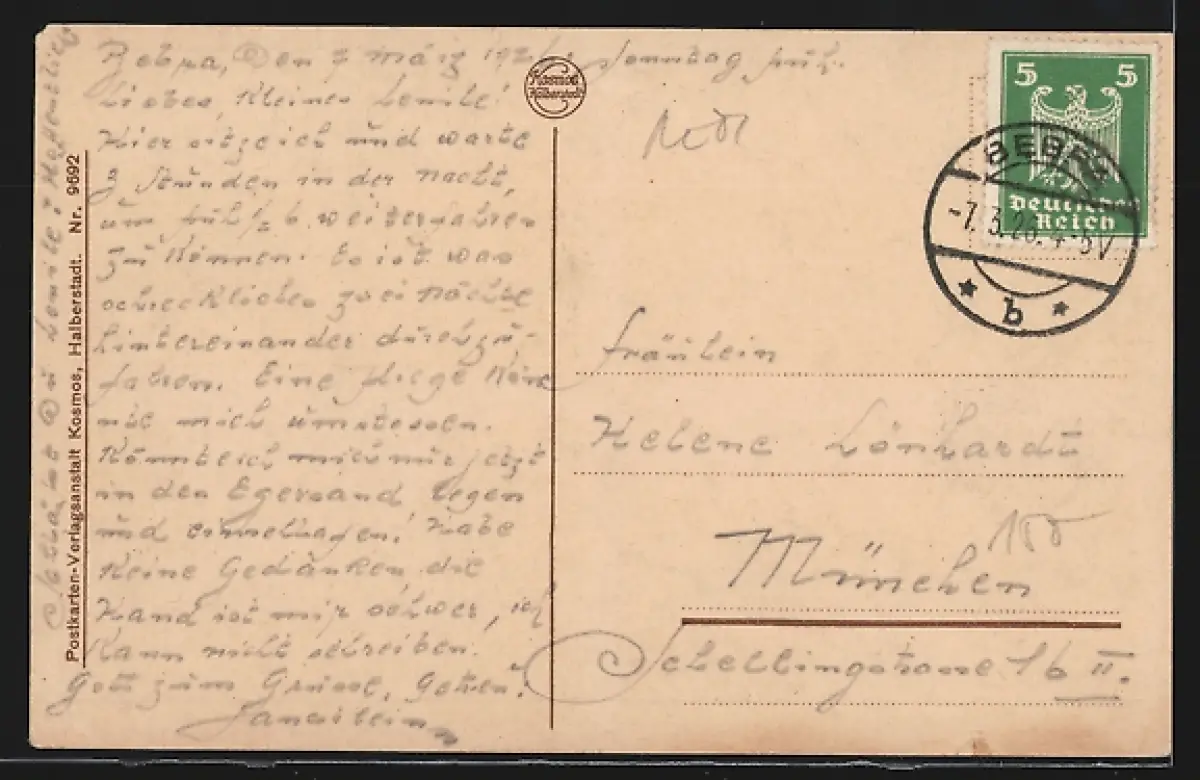 Bebra, den 7 März 192 Sonntag früh.
Liebes, kleines Lenile!
Hier sitze ich und warte
3 Stunden in der Nacht,
um früh 1/2 6 weiterfahren
zu können. Es ist was
schreckliches zwei Nächte
hintereinander durchzu-
fahren. Eine fliege könn
nte mich umstossen.
Könnte ich mich nur jetzt
in den legen
und einschlagen! Habe
keine Gedanken, die
Hand ist mir schwer, ich
kann nicht schreiben.
Gott zum Grusse,
Du Lenile? Hoffentlich
Postkarten-Verlagsanstalt Kosmos, Halberstadt. Nr. 9692
Kosmos
Halberstadt
5 5
Deutsches
Reich
BEBRA
-7.3.26.4-5V
* b *
Fräulein
Helene Lönhardt
München
Schellingstrasse 16 II.